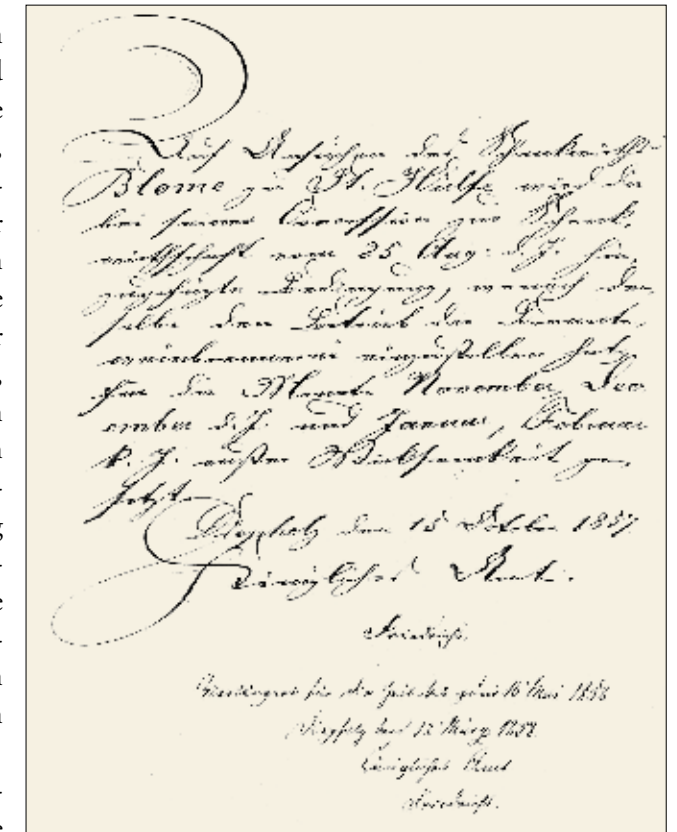 Auf Ansuchen des Schenkwirths
Blome zu St. Hülfe wird die
bei seiner Concession zur Schenk-
wirthschaft vom 25 Aug: d. J. hin-
zugefügte Bedingung, wonach der-
selbe den Betrieb der
einzustellen hat,
für die Monate November, Dec-
ember d. J. und Januar, Februar
k. J. außer Wirksamkeit ge-
setzt.
Diepholz den 15 October 1857
Königliches Amt.
Friedrichs.
Verlängert für die Zeit bis zum 15 Mai 1858
Diepholz den 12 März 1858.
Königliches Amt
Friedrichs.